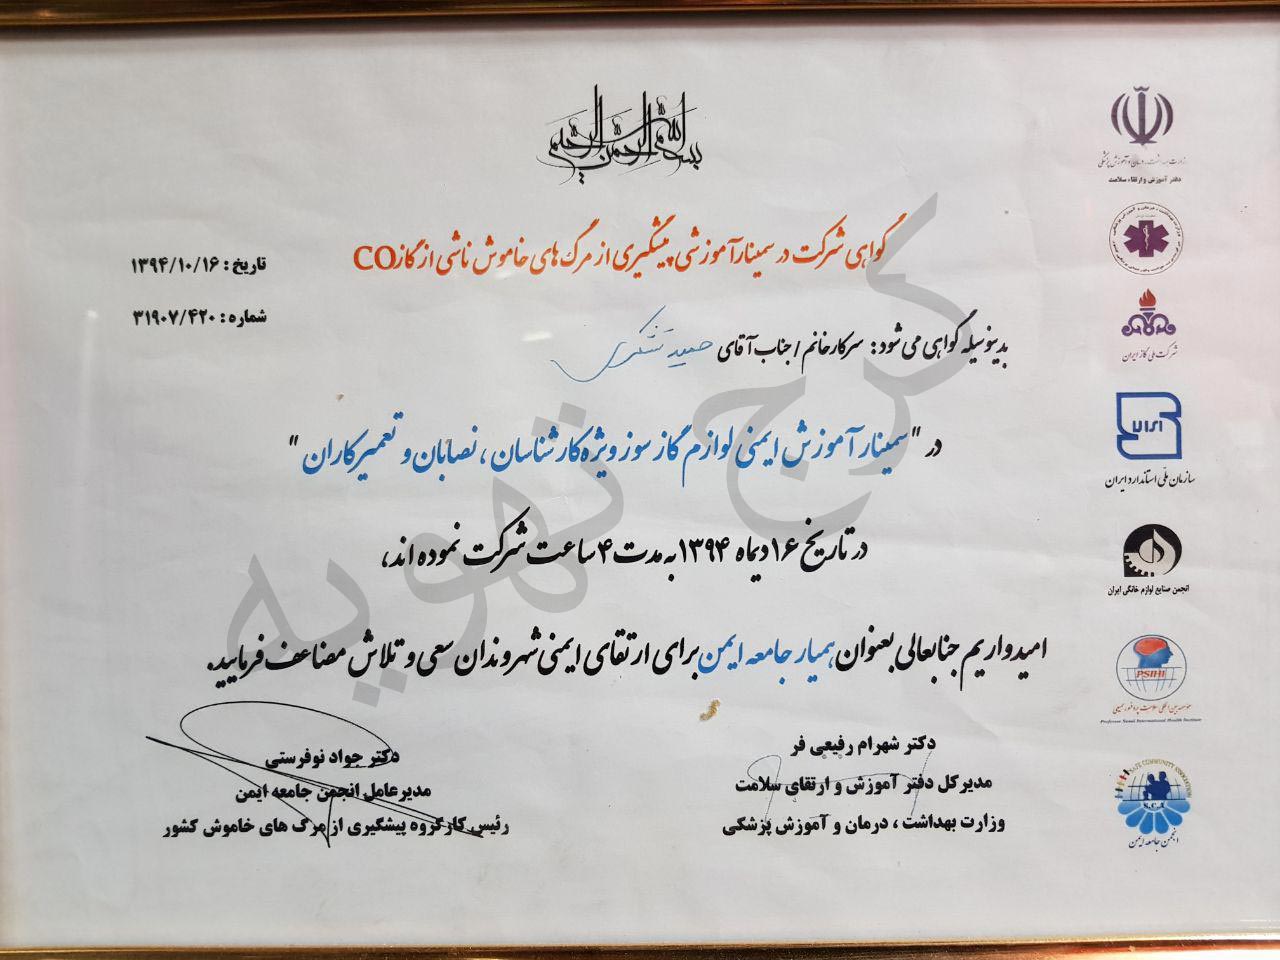 بسم الله الرحمن الرحیم
گواهی شرکت در سمینار آموزشی پیشگیری از مرگ های خاموش ناشی از گاز CO
تاریخ : ۱۳۹۴/۱۰/۱۶
شماره : ۳۱۹۰۷/۴۲۰
بدینوسیله گواهی می شود: سرکار خانم / جناب آقای حمید تشکری
در "سمینار آموزش ایمنی لوازم گاز سوز ویژه کارشناسان ، نصابان و تعمیرکاران "
در تاریخ ۱۶ دیماه ۱۳۹۴ به مدت ۴ ساعت شرکت نموده اند،
امیدواریم جنابعالی بعنوان همیار جامعه ایمن برای ارتقای ایمنی شهروندان سعی و تلاش مضاعف فرمایید.
دکتر شهرام رفیعی فر
مدیرکل دفتر آموزش و ارتقای سلامت
وزارت بهداشت ، درمان و آموزش پزشکی
دکتر جواد نوفرستی
مدیرعامل انجمن جامعه ایمن
رئیس کارگروه پیشگیری از مرگ های خاموش کشور
وزارت بهداشت، درمان و آموزش پزشکی
دفتر آموزش و ارتقاء سلامت
شرکت ملی گاز ایران
ISIRI
سازمان ملی استاندارد ایران
انجمن صنایع لوازم خانگی ایران
PSIHI
موسسه بین المللی سلامت پروفسور سمیعی
Professor Samii International Health Institute
SAFE COMMUNITY ASSOCIATION
انجمن جامعه ایمن
کرج تهویه